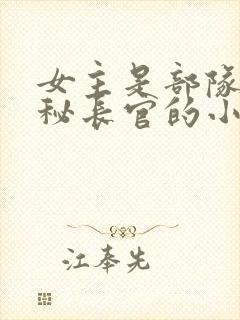 女主是部隊
秘長官的小
江奉先